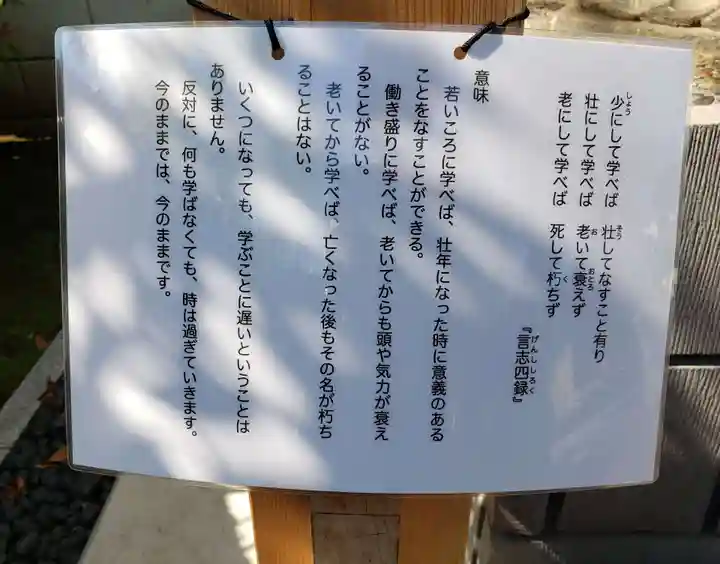 少にして学べば 壮してなすこと有り
壮にして学べば 老いて衰えず
老にして学べば 死して朽ちず
『言志四録』
意味
若いころに学べば、壮年になった時に意義のある
ことをなすことができる。
働き盛りに学べば、老いてからも頭や気力が衰え
ることがない。
老いてから学べば、亡くなった後もその名が朽ち
ることはない。
いくつになっても、学ぶことに遅いということは
ありません。
反対に、何も学ばなくても、時は過ぎていきます。
今のままでは、今のままです。